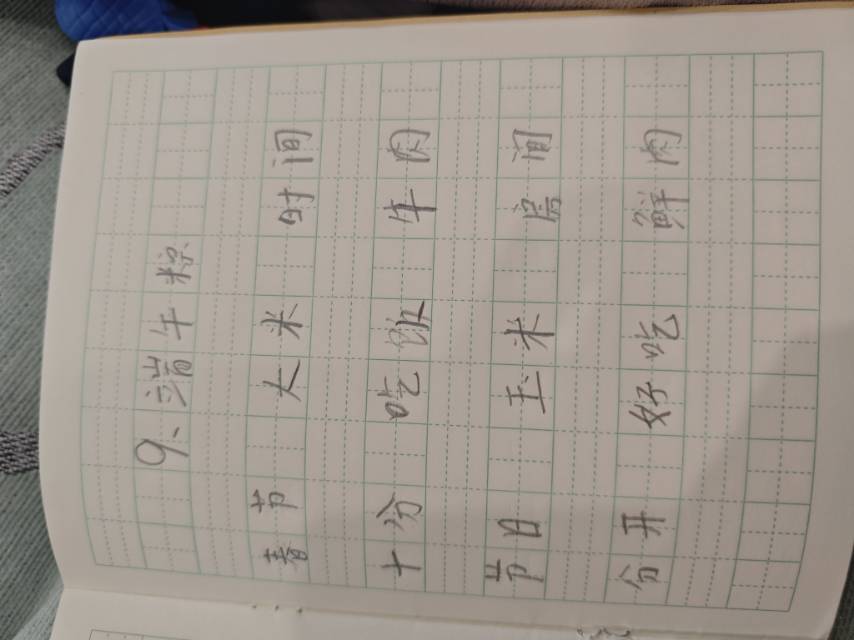 9、端午粽
春节 大米 时间
十分 吃饱 牛肉
节日 玉米 房间
分开 好吃 鲜肉